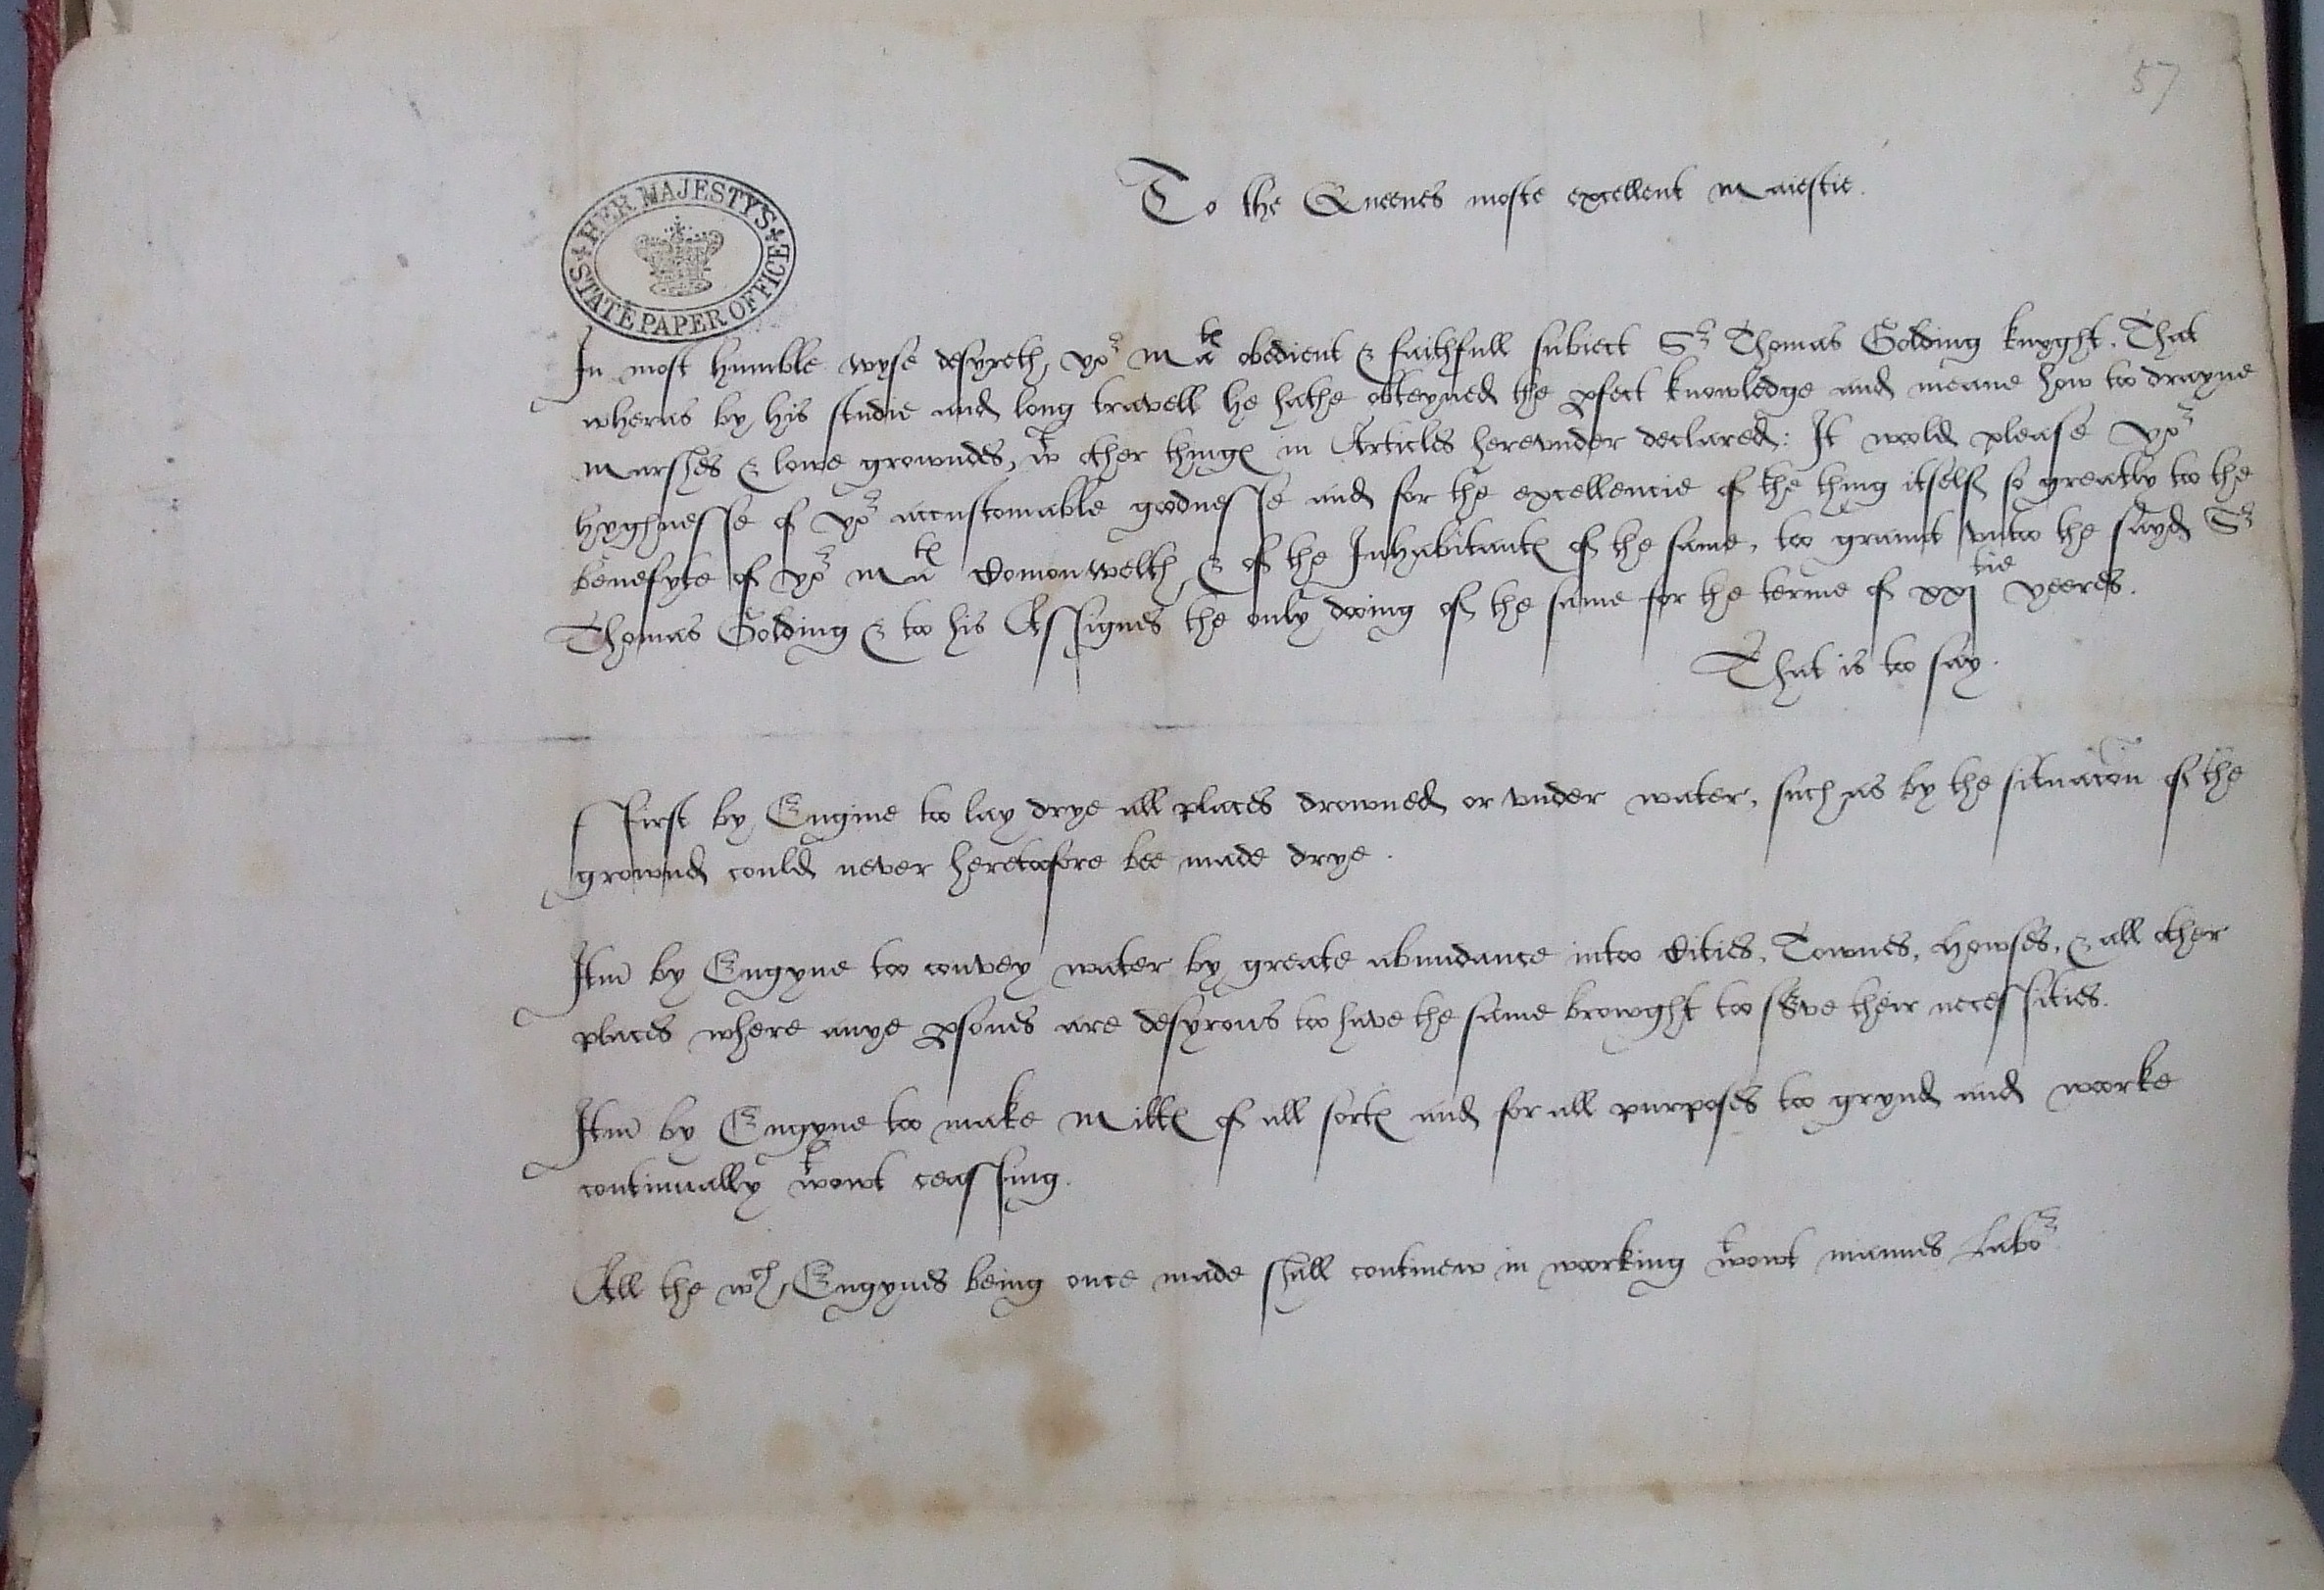 57
To the Queenes moste excellent Maiestie.
HER MAJESTY'S
STATE PAPER OFFICE
In most humble wyse desyreth, yor Mates obedient & faithfull subiect Sr Thomas Golding knyght. That
wheras by his studie and long travell he hathe obteyned the pfect knowledge and meane how too drayne
Marshes & lowe growndes, wt other thinges in Articles herevnder declared: It woold please yor
hyghnesse of yor accustomable goodnesse and for the excellencie of the thing itself so greatly too the
benefyte of yor Mates Comonwelth, & of the Inhabitantes of the same, too graunt vntoo the sayd Sr
Thomas Golding & too his Assignes the only dooing of the same for the terme of xxjtie yeeres.
That is too say.
ffirst by Engine too lay drye all places drowned or vnder water, such as by the situacõn of the
grownd could never heretoofore bee made drye.
Itm̃ by Engyne too convey water by greate abundance intoo Cities, Townes, Howses, & all other
places where anye psones are desyrous too have the same browght too sve their necessities.
Itm̃ by Engyne too make Milles of all sortes and for all purposes too grynd and woorke
continually wtowt ceassing.
All the wch Engynes being once made shall continew in woorking wtowt mannes Labor